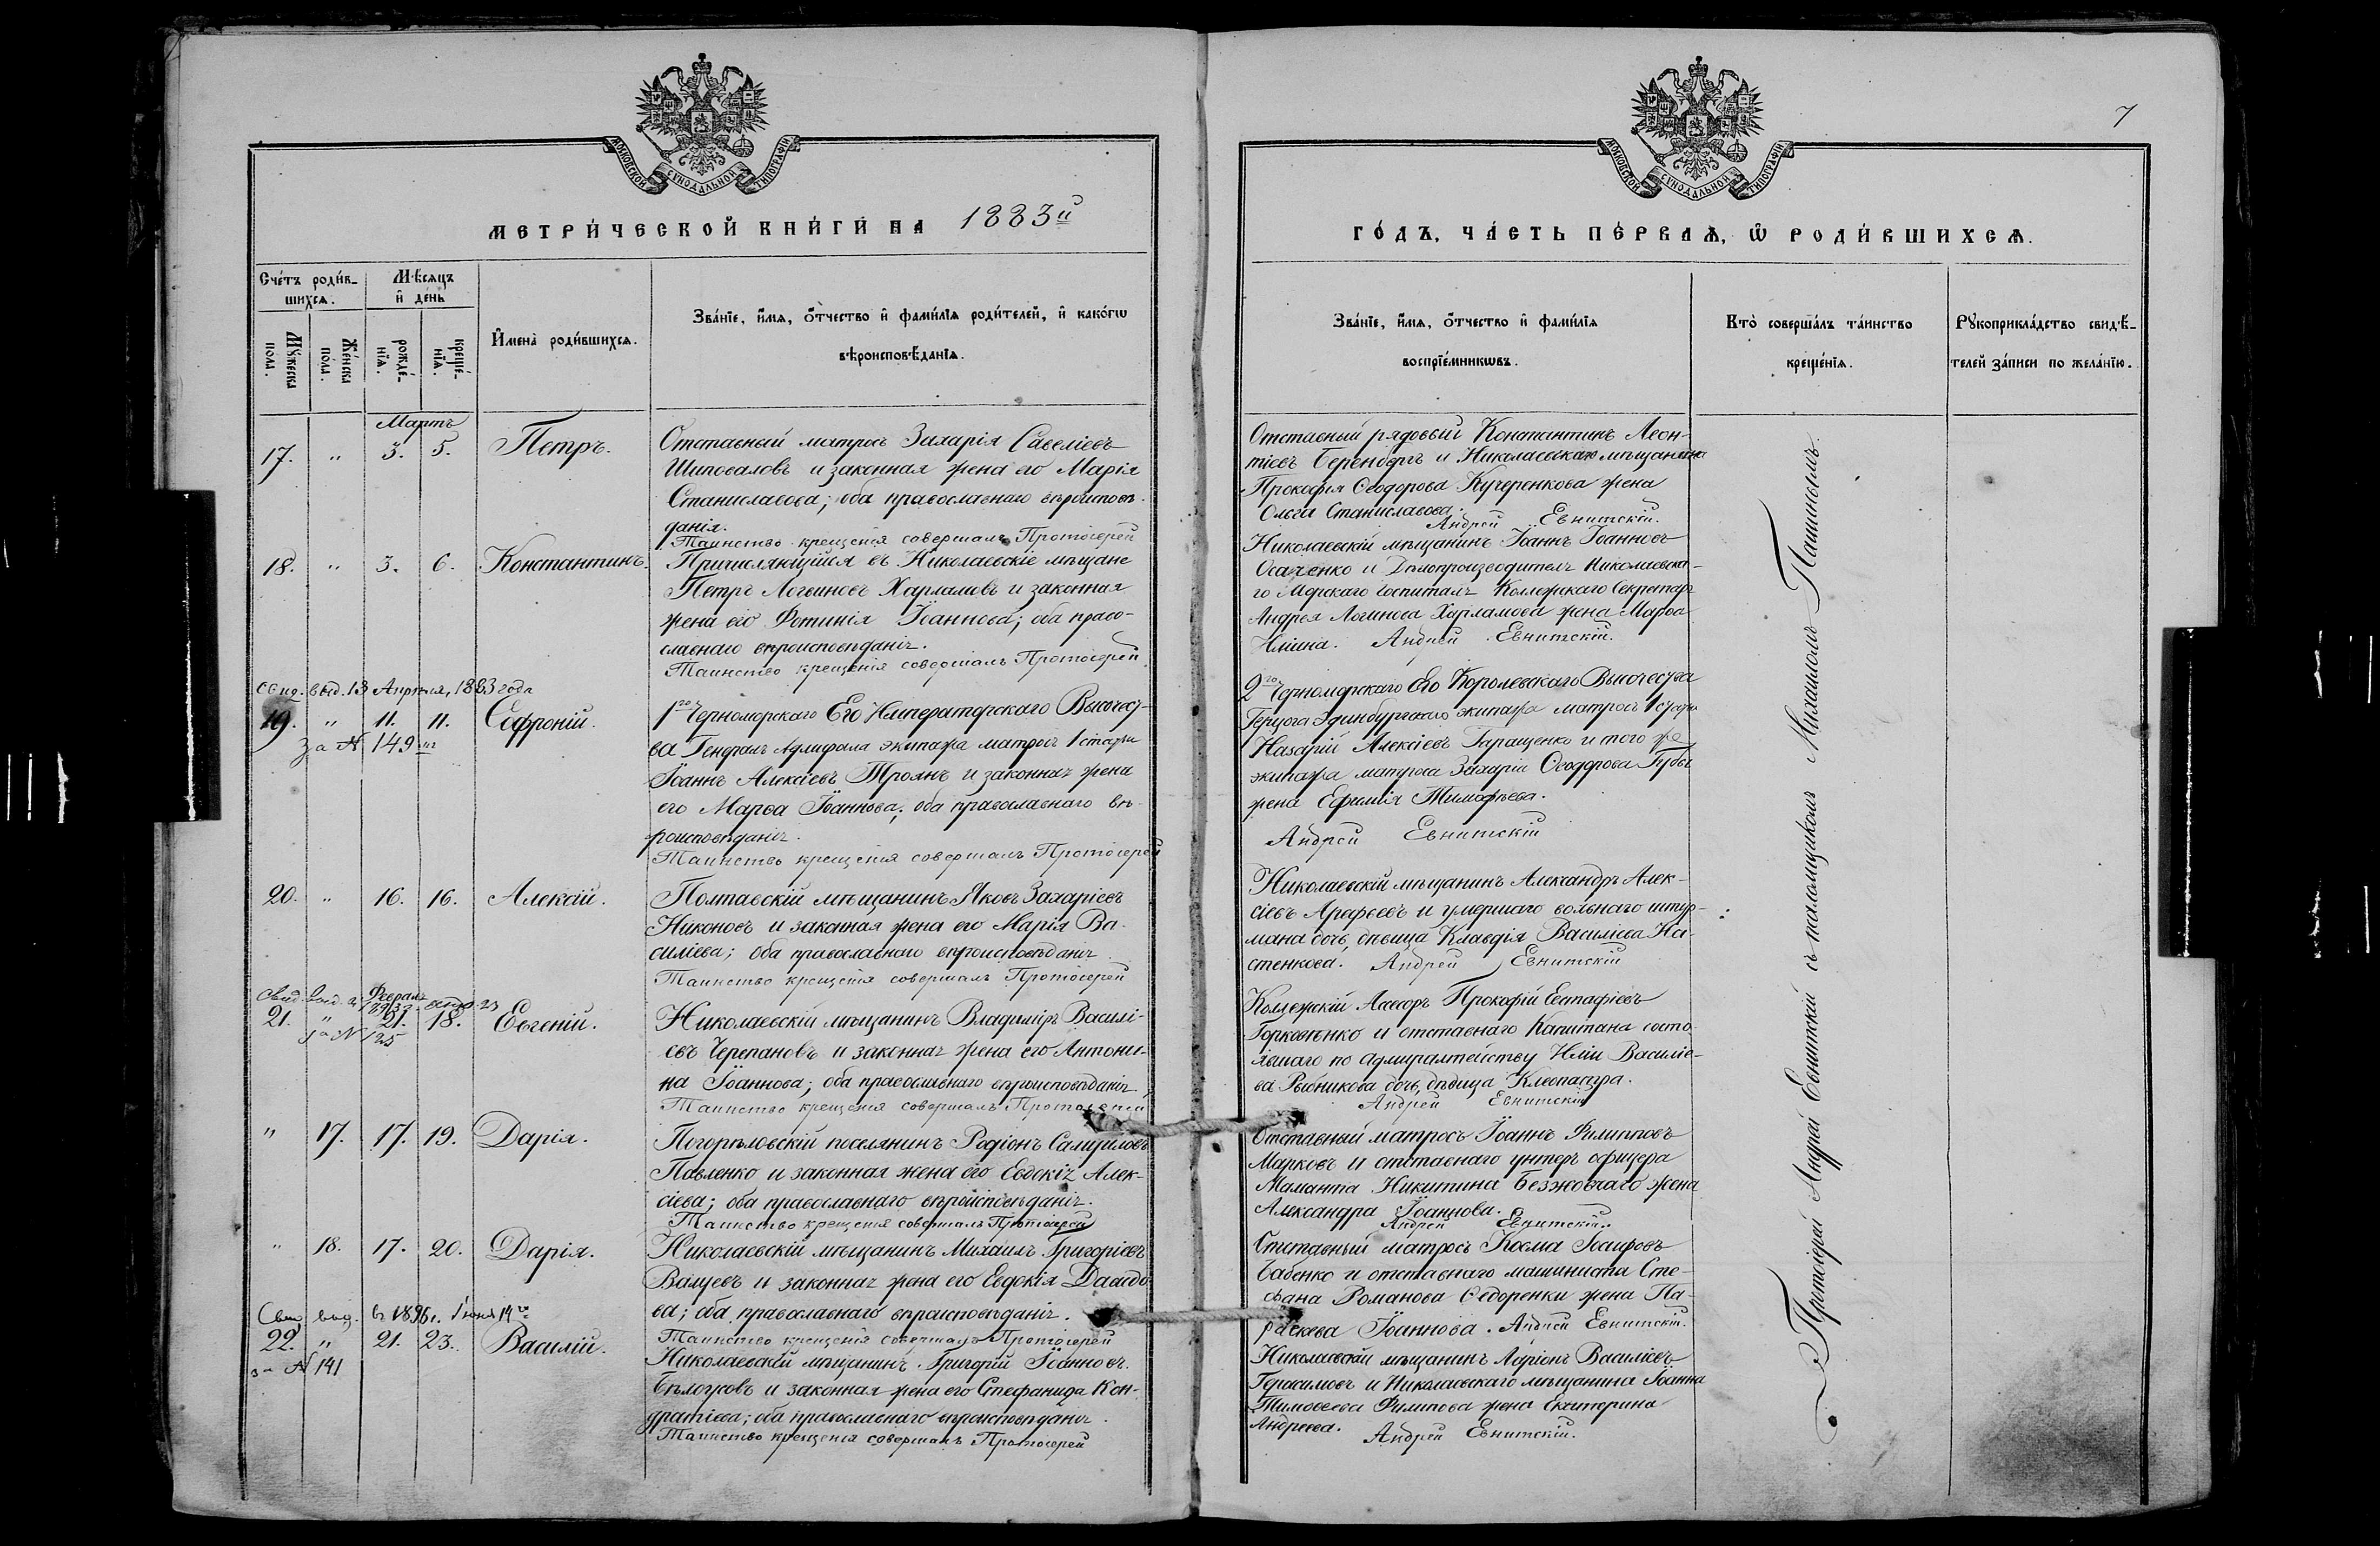 МОСКОВСКОЙ СѴНОДАЛЬНОЙ ТИПОГРАФІИ
МЕТРИ́ЧЕСКОЙ КНИ́ГИ НА 1883й
Сче́тъ роди́в-
шихся.
Мѣ́сяцъ
и҆ де́нь
Мꙋ́жеска
пола.
Же́нска
по́ла.
рожде́-
нїѧ.
креще́-
нїѧ.
И҆мена̀ роди́вшихсѧ.
Зва́нїе, и҆́мѧ, ѻ҆́тчество и҆ фами́лїѧ роди́телей, и҆ како́гѡ
вѣроисповѣ́данїѧ.
Мартъ
17. " 3. 5. Петръ.
Отставный матросъ Захарія Савеліевъ
Шиповаловъ и законная жена его Марія
Станиславова; оба православнаго вѣроисповѣ-
данія.
Таинство крещенія совершалъ Протоіерей
18. " 3. 6. Константинъ.
Причисляющійся въ Николаевскіе мѣщане
Петръ Логиновъ Харламовъ и законная
жена его Фотинія Іоаннова; оба право-
славнаго вѣроисповѣданія.
Таинство крещенія совершалъ Протоіерей
Свид. выд. 13 Апрѣля, 1883 года
19. " 11. 11. Софроній.
за № 149
1го Черноморскаго Его Императорскаго Высочест-
ва Генералъ Адмирала экипажа матросъ 1 статьи
Іоаннъ Алексіевъ Троянъ и законная жена
его Марѳа Іоаннова; оба православнаго вѣ-
роисповѣданія.
Таинство крещенія совершалъ Протоіерей
20. " 16. 16. Алексій.
Полтавскій мѣщанинъ Яковъ Захаріевъ
Никоновъ и законная жена его Марія Ва-
силіева; оба православнаго вѣроисповѣданія
Таинство крещенія совершалъ Протоіерей
Свид. выд.
21. " 21. 18. Евгеній.
за № 125
Николаевскій мѣщанинъ Владиміръ Василі-
евъ Черепановъ и законная жена его Антони-
на Іоаннова; оба православнаго вѣроисповѣданія
Таинство крещенія совершалъ Протоіерей
" 17. 17. 19. Дарія.
Погорѣловскій поселянинъ Родіонъ Самуиловъ
Павленко и законная жена его Евдокія Алек-
сіева; оба православнаго вѣроисповѣданія.
Таинство крещенія совершалъ Протоіерей
" 18. 17. 20. Дарія.
Николаевскій мѣщанинъ Михаилъ Григоріевъ
Валуевъ и законная жена его Евдокія Давидо-
ва; оба православнаго вѣроисповѣданія.
Таинство крещенія совершалъ Протоіерей
Свид. выд. въ 1896 г. Іюня 14го
22. " 21. 23. Василій.
за № 141
Николаевскій мѣщанинъ Григорій Іоанновъ
Бѣлоусовъ и законная жена его Стефанида Кон-
дратіева; оба православнаго вѣроисповѣданія.
Таинство крещенія совершалъ Протоіерей
7
МОСКОВСКОЙ СѴНОДАЛЬНОЙ ТИПОГРАФІИ
ГО́ДЪ, ЧА́СТЬ ПЕ́РВАѦ, Ѽ РОДИ́ВШИХСѦ.
Зва́нїе, и҆́мѧ, ѻ҆́тчество и҆ фами́лїѧ
воспрїе́мникѡвъ.
Кто̀ соверша́лъ та́инство
креще́нїѧ.
Рꙋкоприкла́дство свидѣ́-
телей за́писи по жела́нїю.
Отставный рядовый Константинъ Леон-
тіевъ Беренбергъ и Николаевскаго мѣщанина
Прокофія Ѳеодорова Кучеренкова жена
Ольга Станиславова.
Андрей Евнитскій.
Николаевскій мѣщанинъ Іоаннъ Іоанновъ
Осаченко и Дѣлопроизводителя Николаевска-
го Морскаго Госпиталя Коллежскаго Секретаря
Андрея Логинова Харламова жена Марѳа
Иліина. Андрей Евнитскій.
2го Черноморскаго Его Королевскаго Высочества
Герцога Эдинбургскаго экипажа матросъ 1 статьи
Назарій Алексіевъ Таращенко и того же
экипажа матроса Захарія Ѳеодорова Губы
жена Ефимія Тимофѣева.
Андрей Евнитскій
Николаевскій мѣщанинъ Александръ Алек-
сіевъ Арефьевъ и умершаго вольнаго штур-
мана дочь, дѣвица Клавдія Василіева На-
стенкова. Андрей Евнитскій
Коллежскій Ассесоръ Прокофій Евстафіевъ
Горковенко и отставнаго Капитана состо-
явшаго по адмиралтейству Иліи Василіе-
ва Рыбникова дочь, дѣвица Клеопатра.
Андрей Евнитскій
Отставный матросъ Іоаннъ Филипповъ
Марковъ и отставнаго унтеръ офицера
Маманта Никитина Безжовчаго жена
Александра Іоаннова.
Андрей Евнитскій.
Отставный матросъ Косма Іосифовъ
Бабенко и отставнаго машиниста Сте-
фана Романова Ѳедоренки жена Па-
раскева Іоаннова. Андрей Евнитскій.
Николаевскій мѣщанинъ Адріонъ Василіевъ
Герасимовъ и Николаевскаго мѣщанина Іоанна
Тимоѳеева Филипова жена Екатерина
Андреева.
Андрей Евнитскій.
Протоіерей Андрей Евнитскій съ псаломщикомъ Михаиломъ